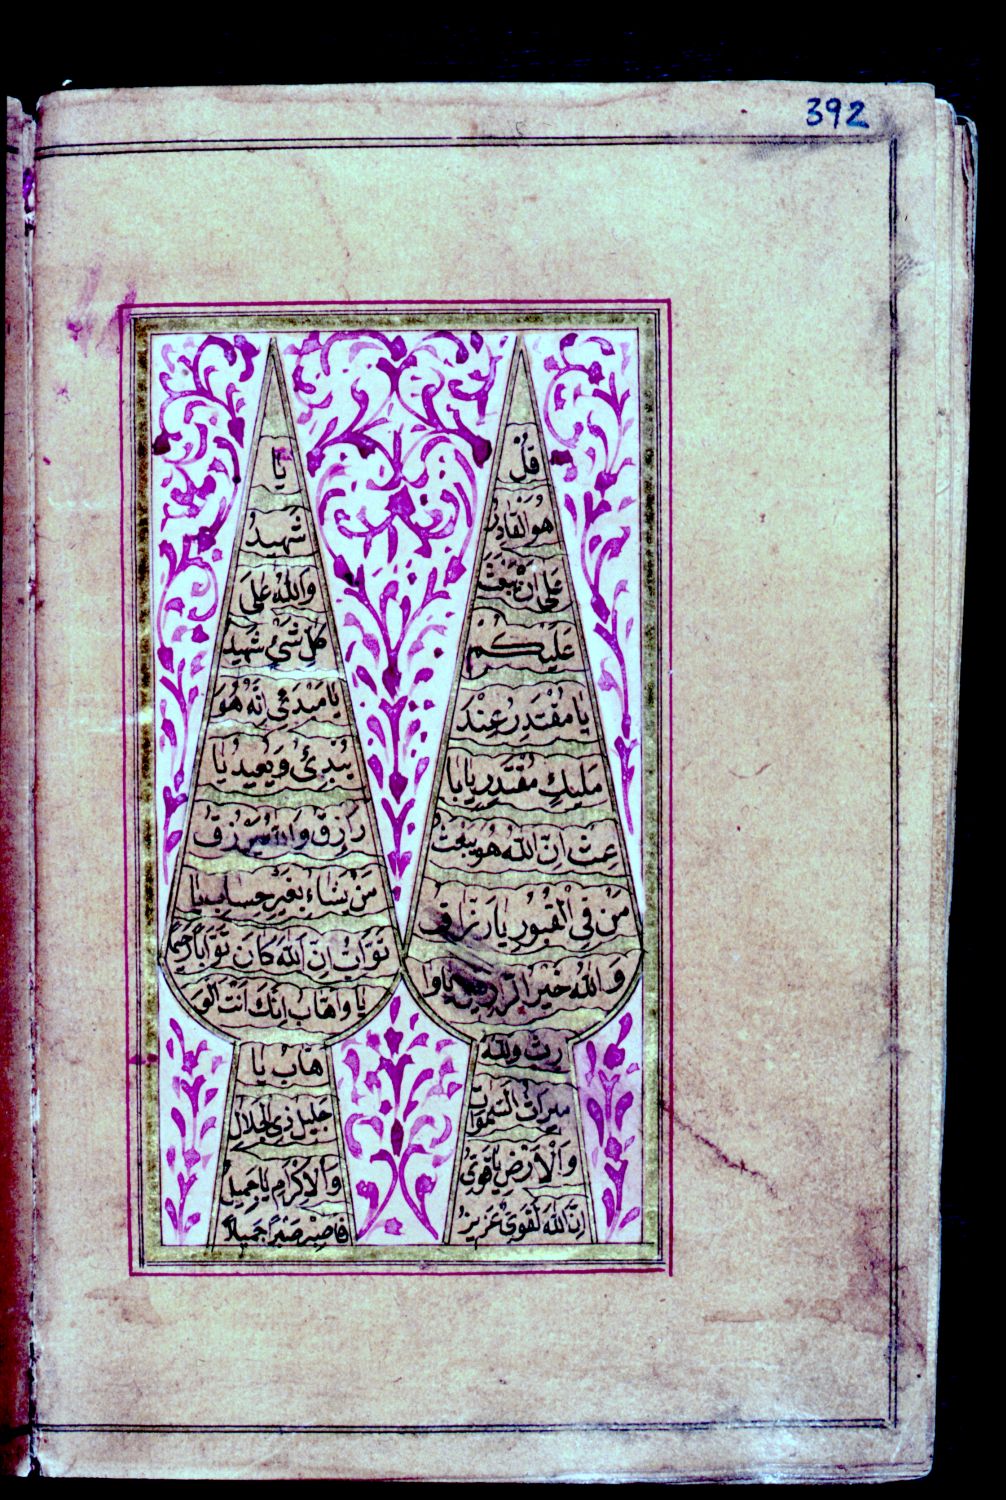 392
قُلْ
هُوَ لْقَادِرُ
عَلَى اَنْ يَبْعَثَ
عَلَيْكُمْ
يَا مُقْتَدِرُ عِنْدَ
مَلِيكٍ مُقْتَدِرٍ يَا با
عِثُ اِنَّ اللّٰهَ هُوَ يَبْعَثُ
مَنْ فِي الْقُبُورِ يَا رَزَّاقُ
وَاللّٰهُ خَيْرُ الرّٰزِقِينَ يَا وا
رِثُ وَلِلّٰهِ
مِيرَاثُ السَّمٰوَاتِ
وَالْاَرْضِ يَا قَوِيُّ
اِنَّ اللّٰهَ لَقَوِيٌّ عَزِيزٌ
يَا
شَهِيدُ
وَاللّٰهُ عَلَى
كُلِّ شَيْءٍ شَهِيدٌ
يَا مُبْدِئُ اِنَّهُ هُوَ
يُبْدِئُ وَيُعِيدُ يَا
رَازِقُ وَاللّٰهُ يَرْزُقُ
مَنْ يَشَاءُ بِغَيْرِ حِسَابٍ يَا
تَوَّابُ اِنَّ اللّٰهَ كَانَ تَوَّابًا رَحِيمًا
يَا وَهَّابُ اِنَّكَ اَنْتَ الْوَ
هَّابُ يَا
جَلِيلُ ذِي الْجَلَالِ
وَالْاِكْرَامِ يَا جَمِيلُ
فَاصْبِرْ صَبْرًا جَمِيلًا